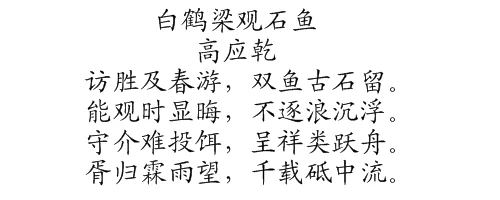 白鹤梁观石鱼
高应乾
访胜及春游，双鱼古石留。
能观时显晦，不逐浪沉浮。
守介难投饵，呈祥类跃舟。
胥归霖雨望，千载砥中流。